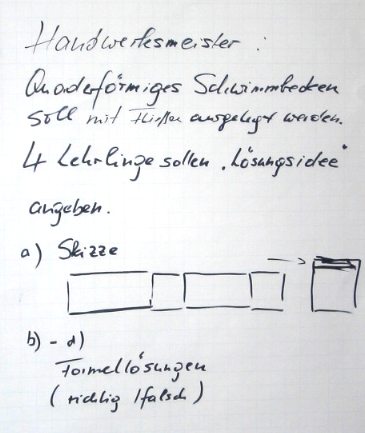 Handwerksmeister :
Quaderförmiges Schwimmbecken
soll mit Fließen ausgelegt werden.
4 Lehrlinge sollen „Lösungsidee"
angeben.
a) Skizze
b) - d)
Formellösungen
(richtig / falsch)